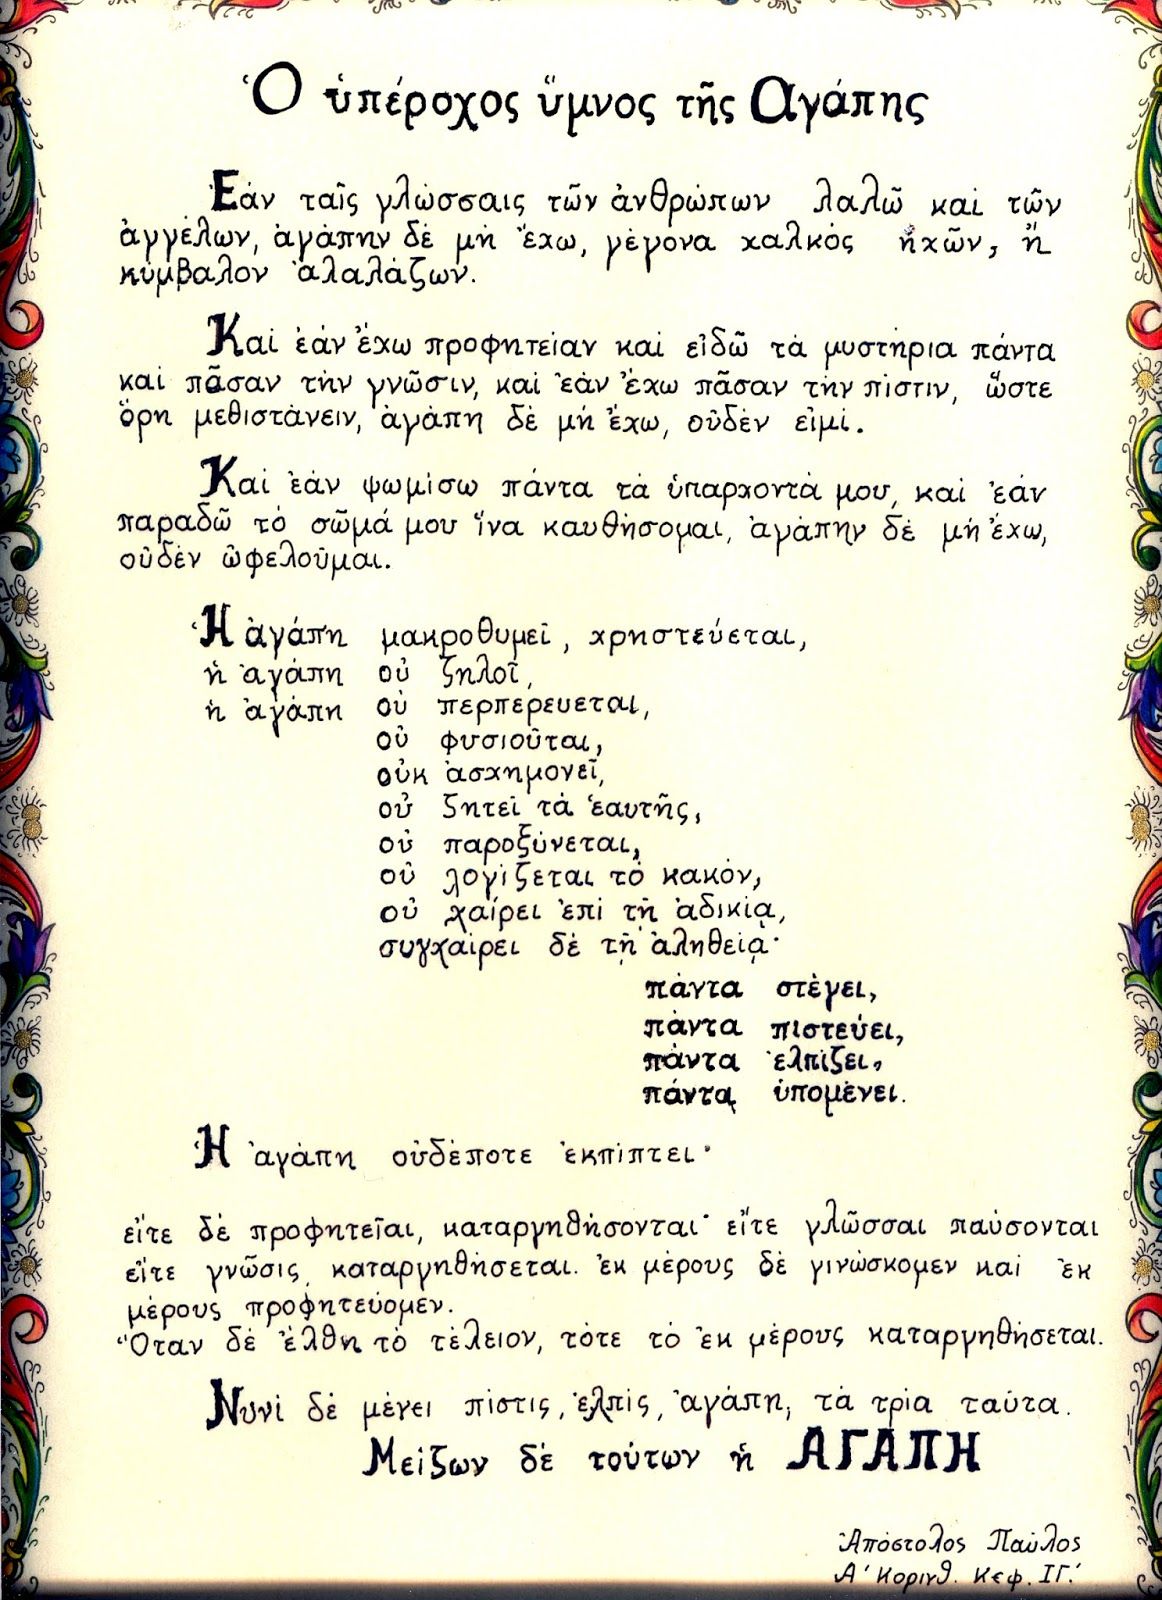 Ὁ ὑπέροχος ὕμνος τῆς Ἀγάπης
Ἐάν ταῖς γλώσσαις τῶν ἀνθρώπων λαλῶ καί τῶν
ἀγγέλων, ἀγάπην δέ μή ἔχω, γέγονα χαλκός ἠχῶν, ἤ
κύμβαλον ἀλαλάζων.
Καί ἐάν ἔχω προφητείαν καί εἰδῶ τά μυστήρια πάντα
καί πᾶσαν τήν γνῶσιν, καί ἐάν ἔχω πᾶσαν τήν πίστιν, ὥστε
ὄρη μεθιστάνειν, ἀγάπη δέ μή ἔχω, οὐδέν εἰμί.
Καί ἐάν ψωμίσω πάντα τά ὑπαρχοντά μου, καί ἐάν
παραδῶ τό σῶμά μου ἵνα καυθήσομαι, ἀγάπην δέ μή ἔχω,
οὐδέν ὠφελοῦμαι.
Ἡ ἀγάπη μακροθυμεῖ, χρηστεύεται,
ἡ ἀγάπη οὐ ζηλοῖ,
ἡ ἀγάπη οὐ περπερευεται,
οὐ φυσιοῦται,
οὐκ ἀσχημονεῖ,
οὐ ζητεῖ τά ἑαυτῆς,
οὐ παροξύνεται,
οὐ λογίζεται τό κακόν,
οὐ χαίρει ἐπί τῇ ἀδικίᾳ,
συγχαίρει δέ τῇ ἀληθείᾳ·
πάντα στέγει,
πάντα πιστεύει,
πάντα ἐλπίζει,
πάντα ὑπομένει.
Ἡ ἀγάπη οὐδέποτε ἐκπίπτει·
εἴτε δέ προφητεῖαι, καταργηθήσονται· εἴτε γλῶσσαι παύσονται
εἴτε γνῶσις, καταργηθήσεται. ἐκ μέρους δέ γινώσκομεν καί ἐκ
μέρους προφητεύομεν.
Ὅταν δέ ἔλθη τό τέλειον, τότε τό ἐκ μέρους καταργηθήσεται.
Νυνί δέ μένει πίστις, ἐλπίς, ἀγάπη, τά τρία ταῦτα.
Μείζων δέ τούτων ἡ ΑΓΑΠΗ
Ἀπόστολος Παῦλος
Α' Κορινθ. Κεφ. ΙΓ.'